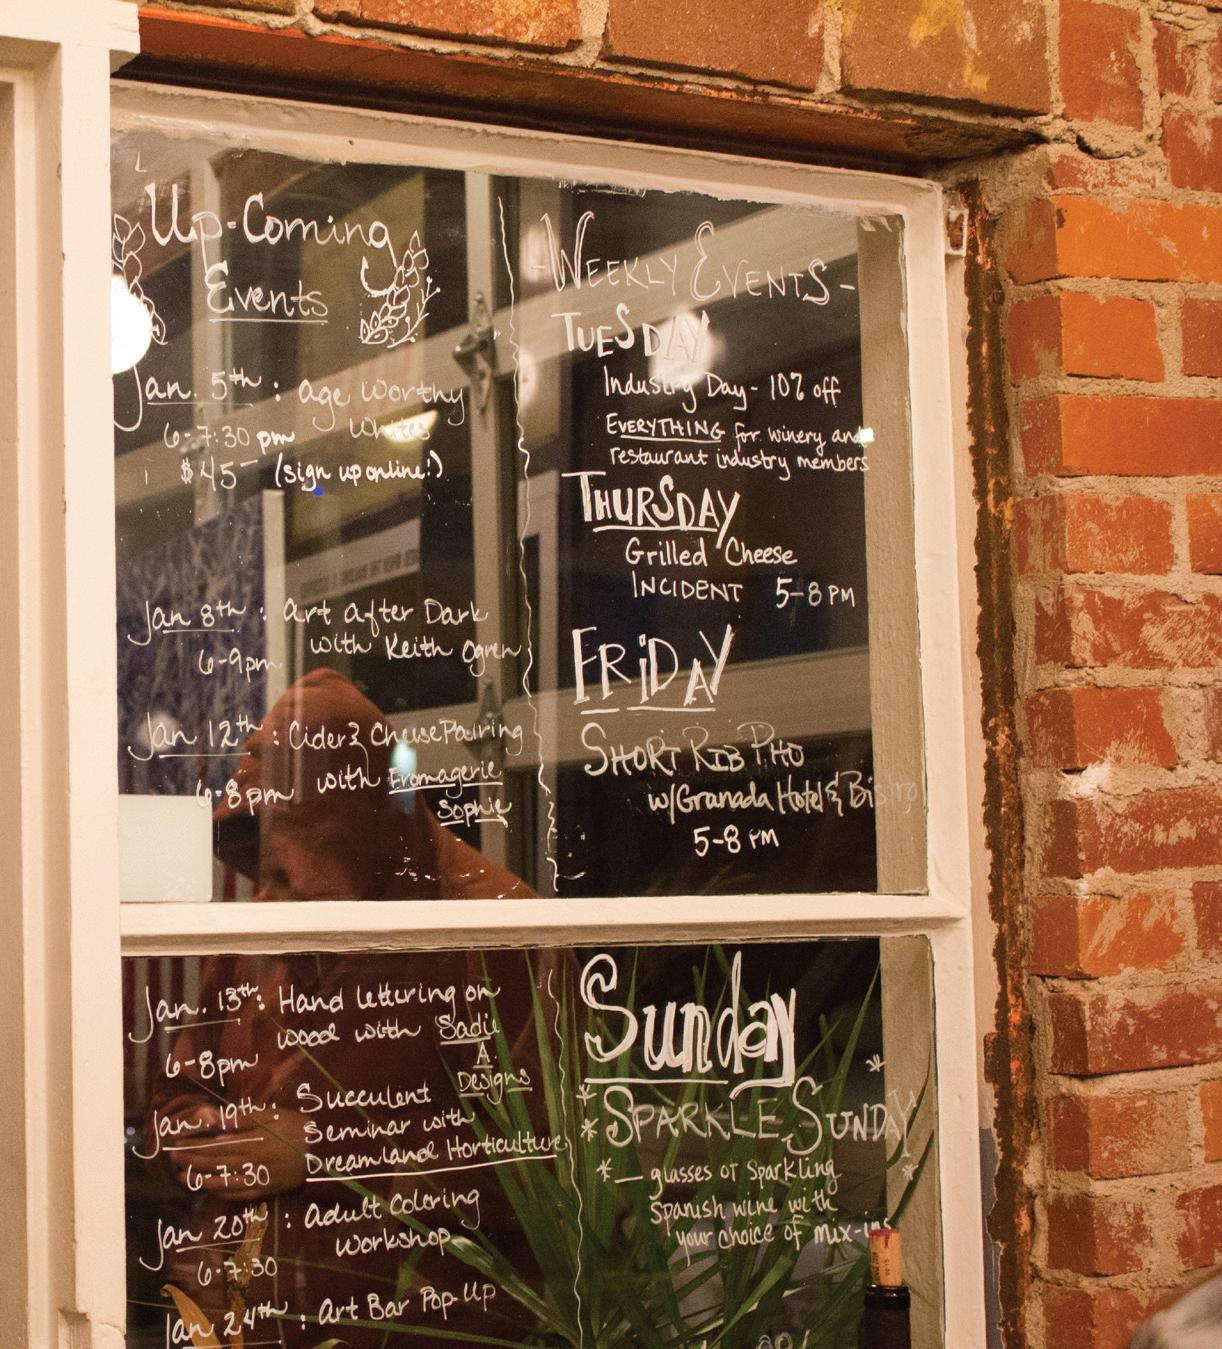 Up-Coming
Events
Jan. 5th : age worthy
6-7:30 pm whites
$45- (sign up online!)
Jan 8th : Art after Dark
with Keith Ogren
6-9pm
Jan 12th : Cider & Cheese Pairing
with Fromagerie
6-8pm
Sophie
Jan. 13th : Hand lettering on
wood with Sadie
A.
6-8pm
Designs
Jan. 19th : Succulent
Seminar with
Dreamland Horticulture
6-7:30
Jan 20th : Adult Coloring
Workshop
6-7:30
Jan 24th : Art Bar Pop-Up
-Weekly Events-
TUESDAY
Industry Day - 10% off
EVERYTHING for winery and
restaurant industry members
THURSDAY
Grilled Cheese
INCIDENT 5-8 PM
FRiDAY
SHORT RIB PHO
w/Granada Hotel & Bistro
5-8 PM
Sunday
*SPARKLE SUNDAY
*— glasses of Sparkling
Spanish wine with
your choice of mix-ins